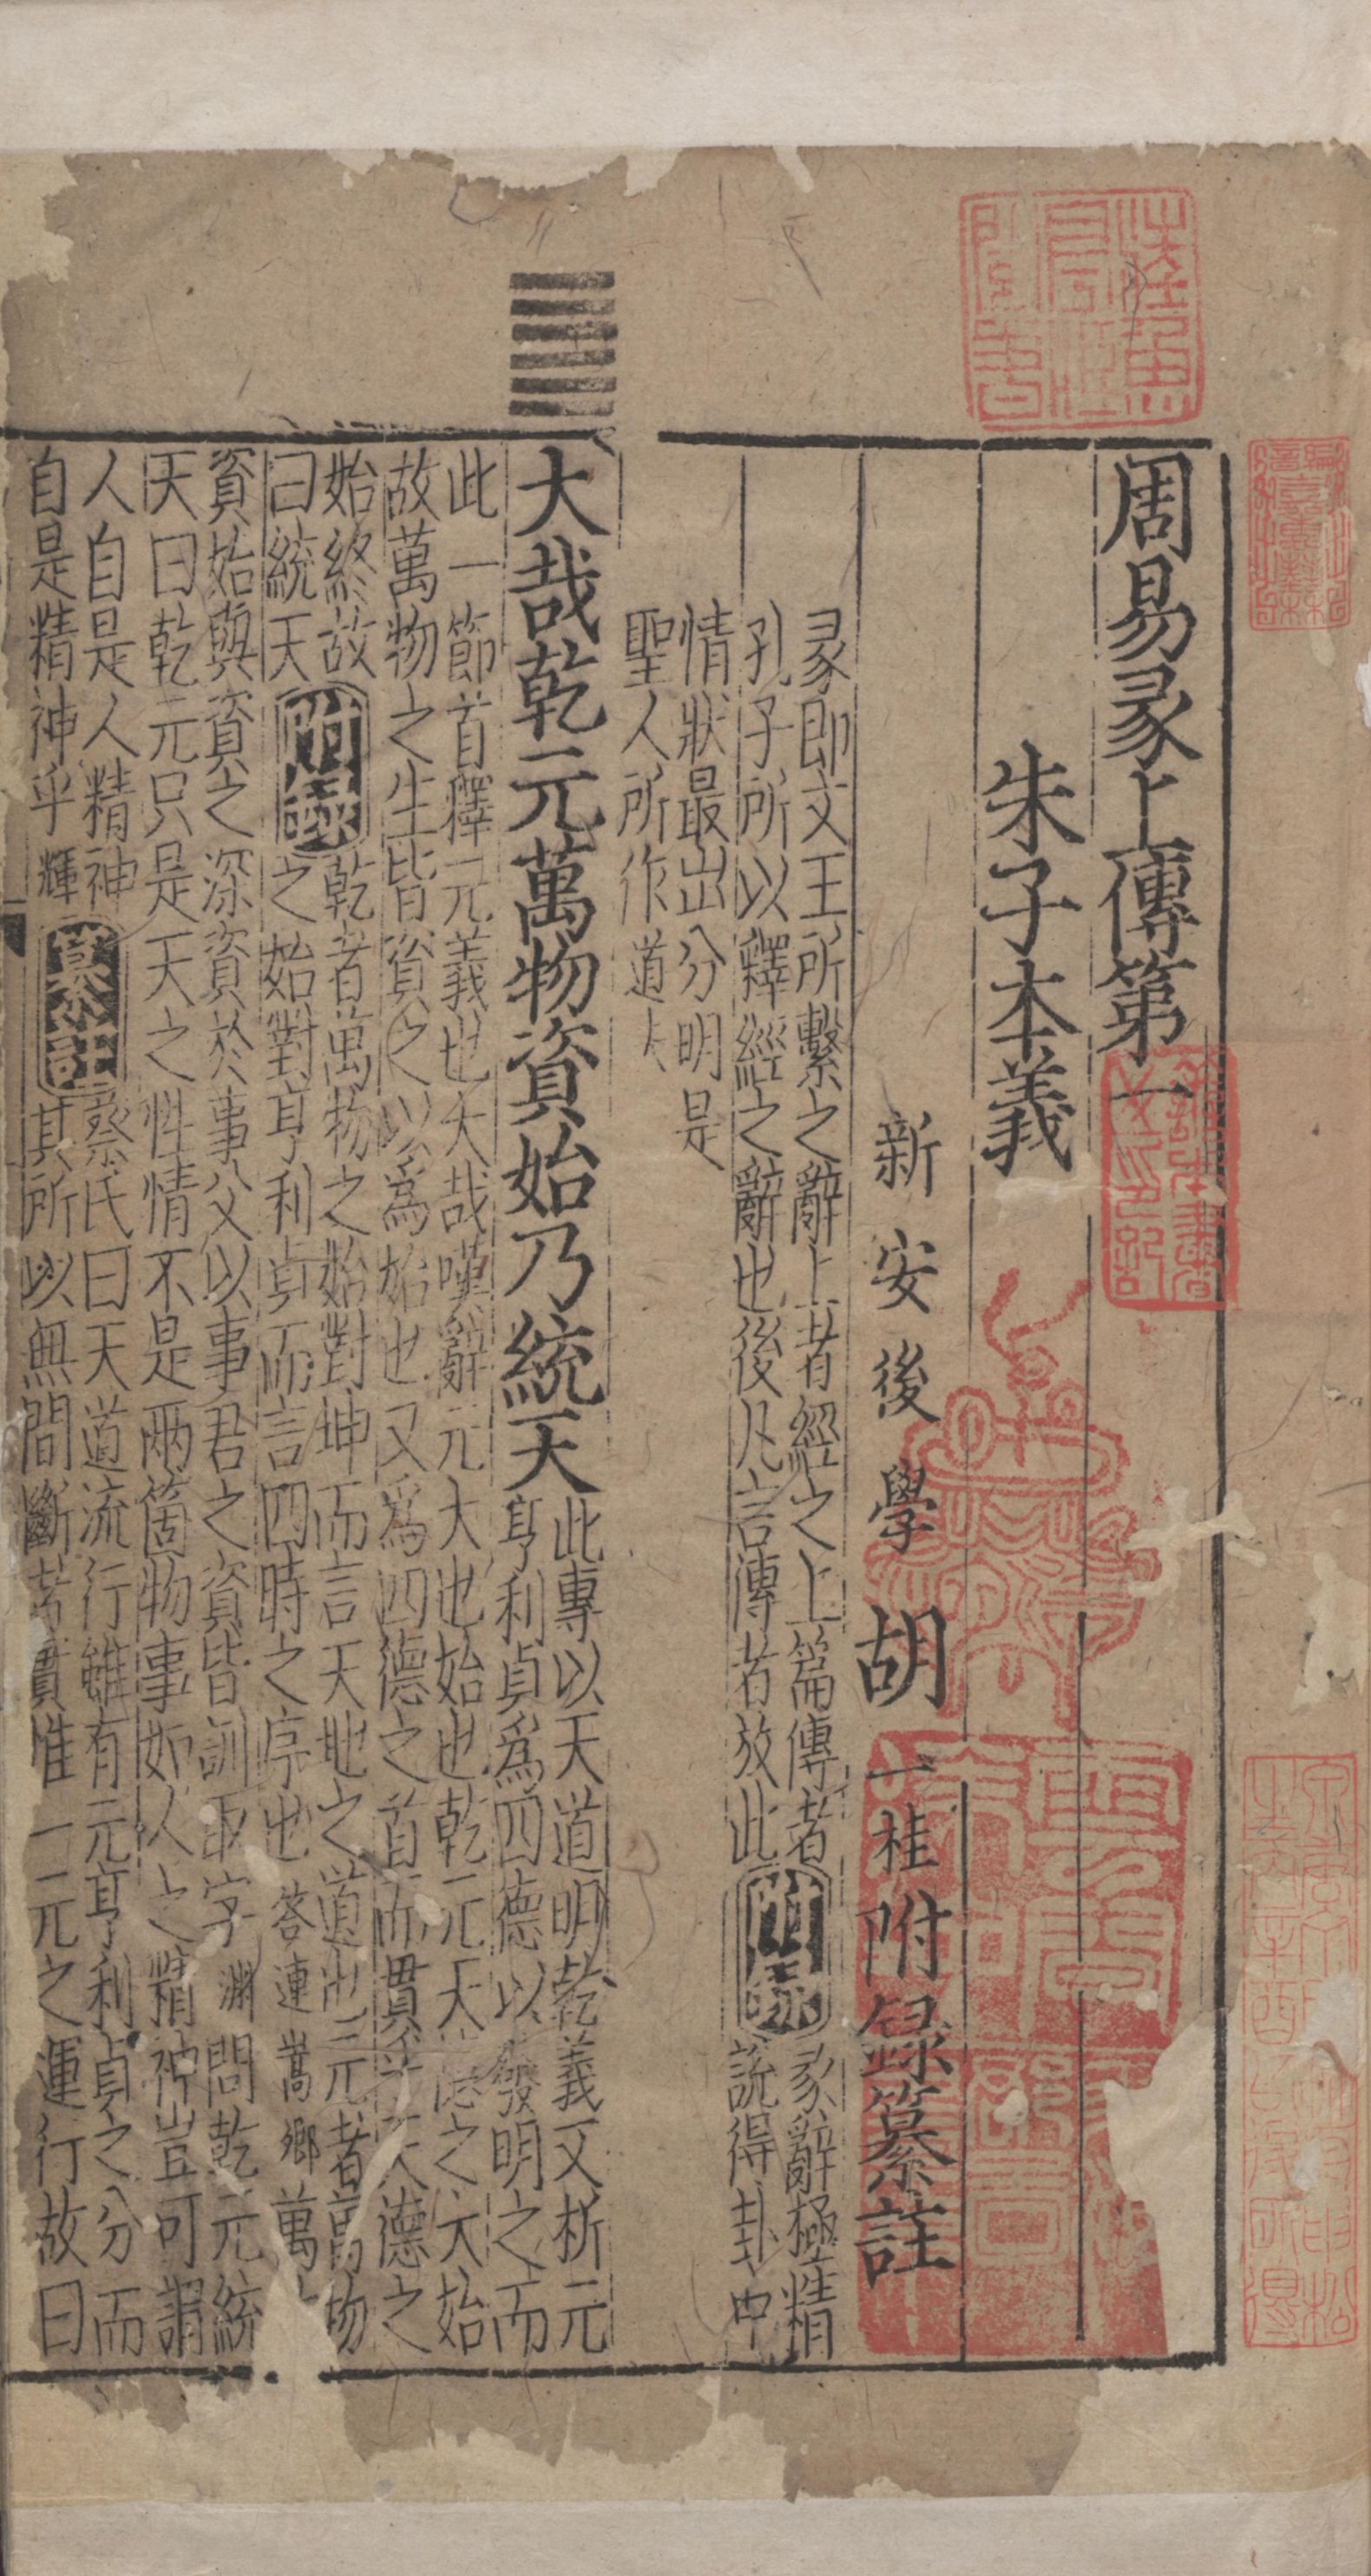 周易彖上傳第一
朱子本義
新安後學胡一桂附録纂註
彖即文王所繫之辭上者經之上篇傳者
孔子所以釋經之辭也後凡言傳者放此
附録
彖辭極精
說得卦中
情狀最出分明是
聖人所作道
大哉乾元萬物資始乃統天
此專以天道明乾義又析元
亨利貞為四德以發明之而
此一節首釋元義也大哉嘆辭元大也始也乾元天德之大始
故萬物之生皆資之以為始也又為四德之首而貫乎天德之
始終故曰統天
附録
乾者萬物之始對坤而言天地之道也元者萬物
之始對亨利貞而言四時之序也答連嵩卿萬
資始與資之深資於事父以事君之資皆訓取字淵問乾元統
天曰乾元只是天之性情不是兩箇物事如人之精神豈可謂
人自是人精神自是精神乎輝
纂註
蔡氏曰天道流行雖有元亨利貞之分而
其所以無間斷者實惟一元之運行故曰